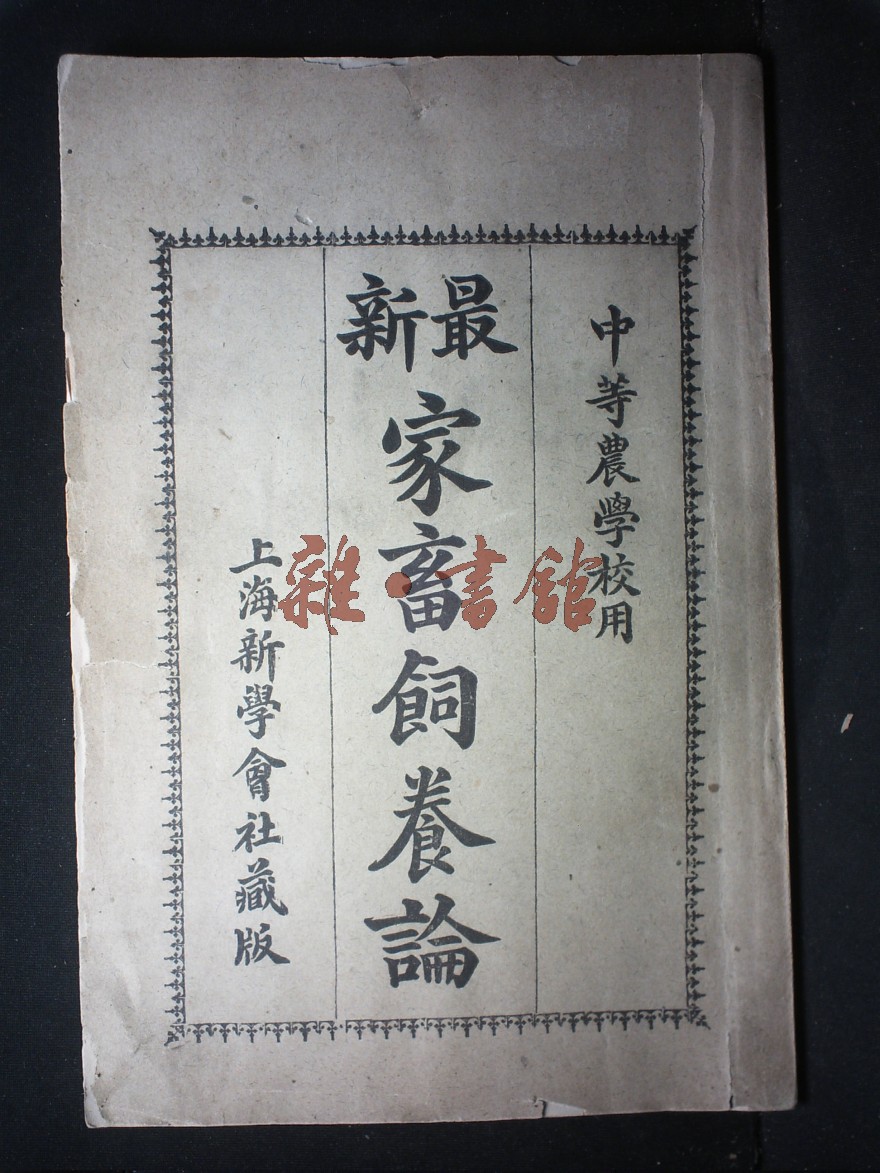 中等農學校用
最新
家畜飼養論
上海新學會社藏版
雜·書館